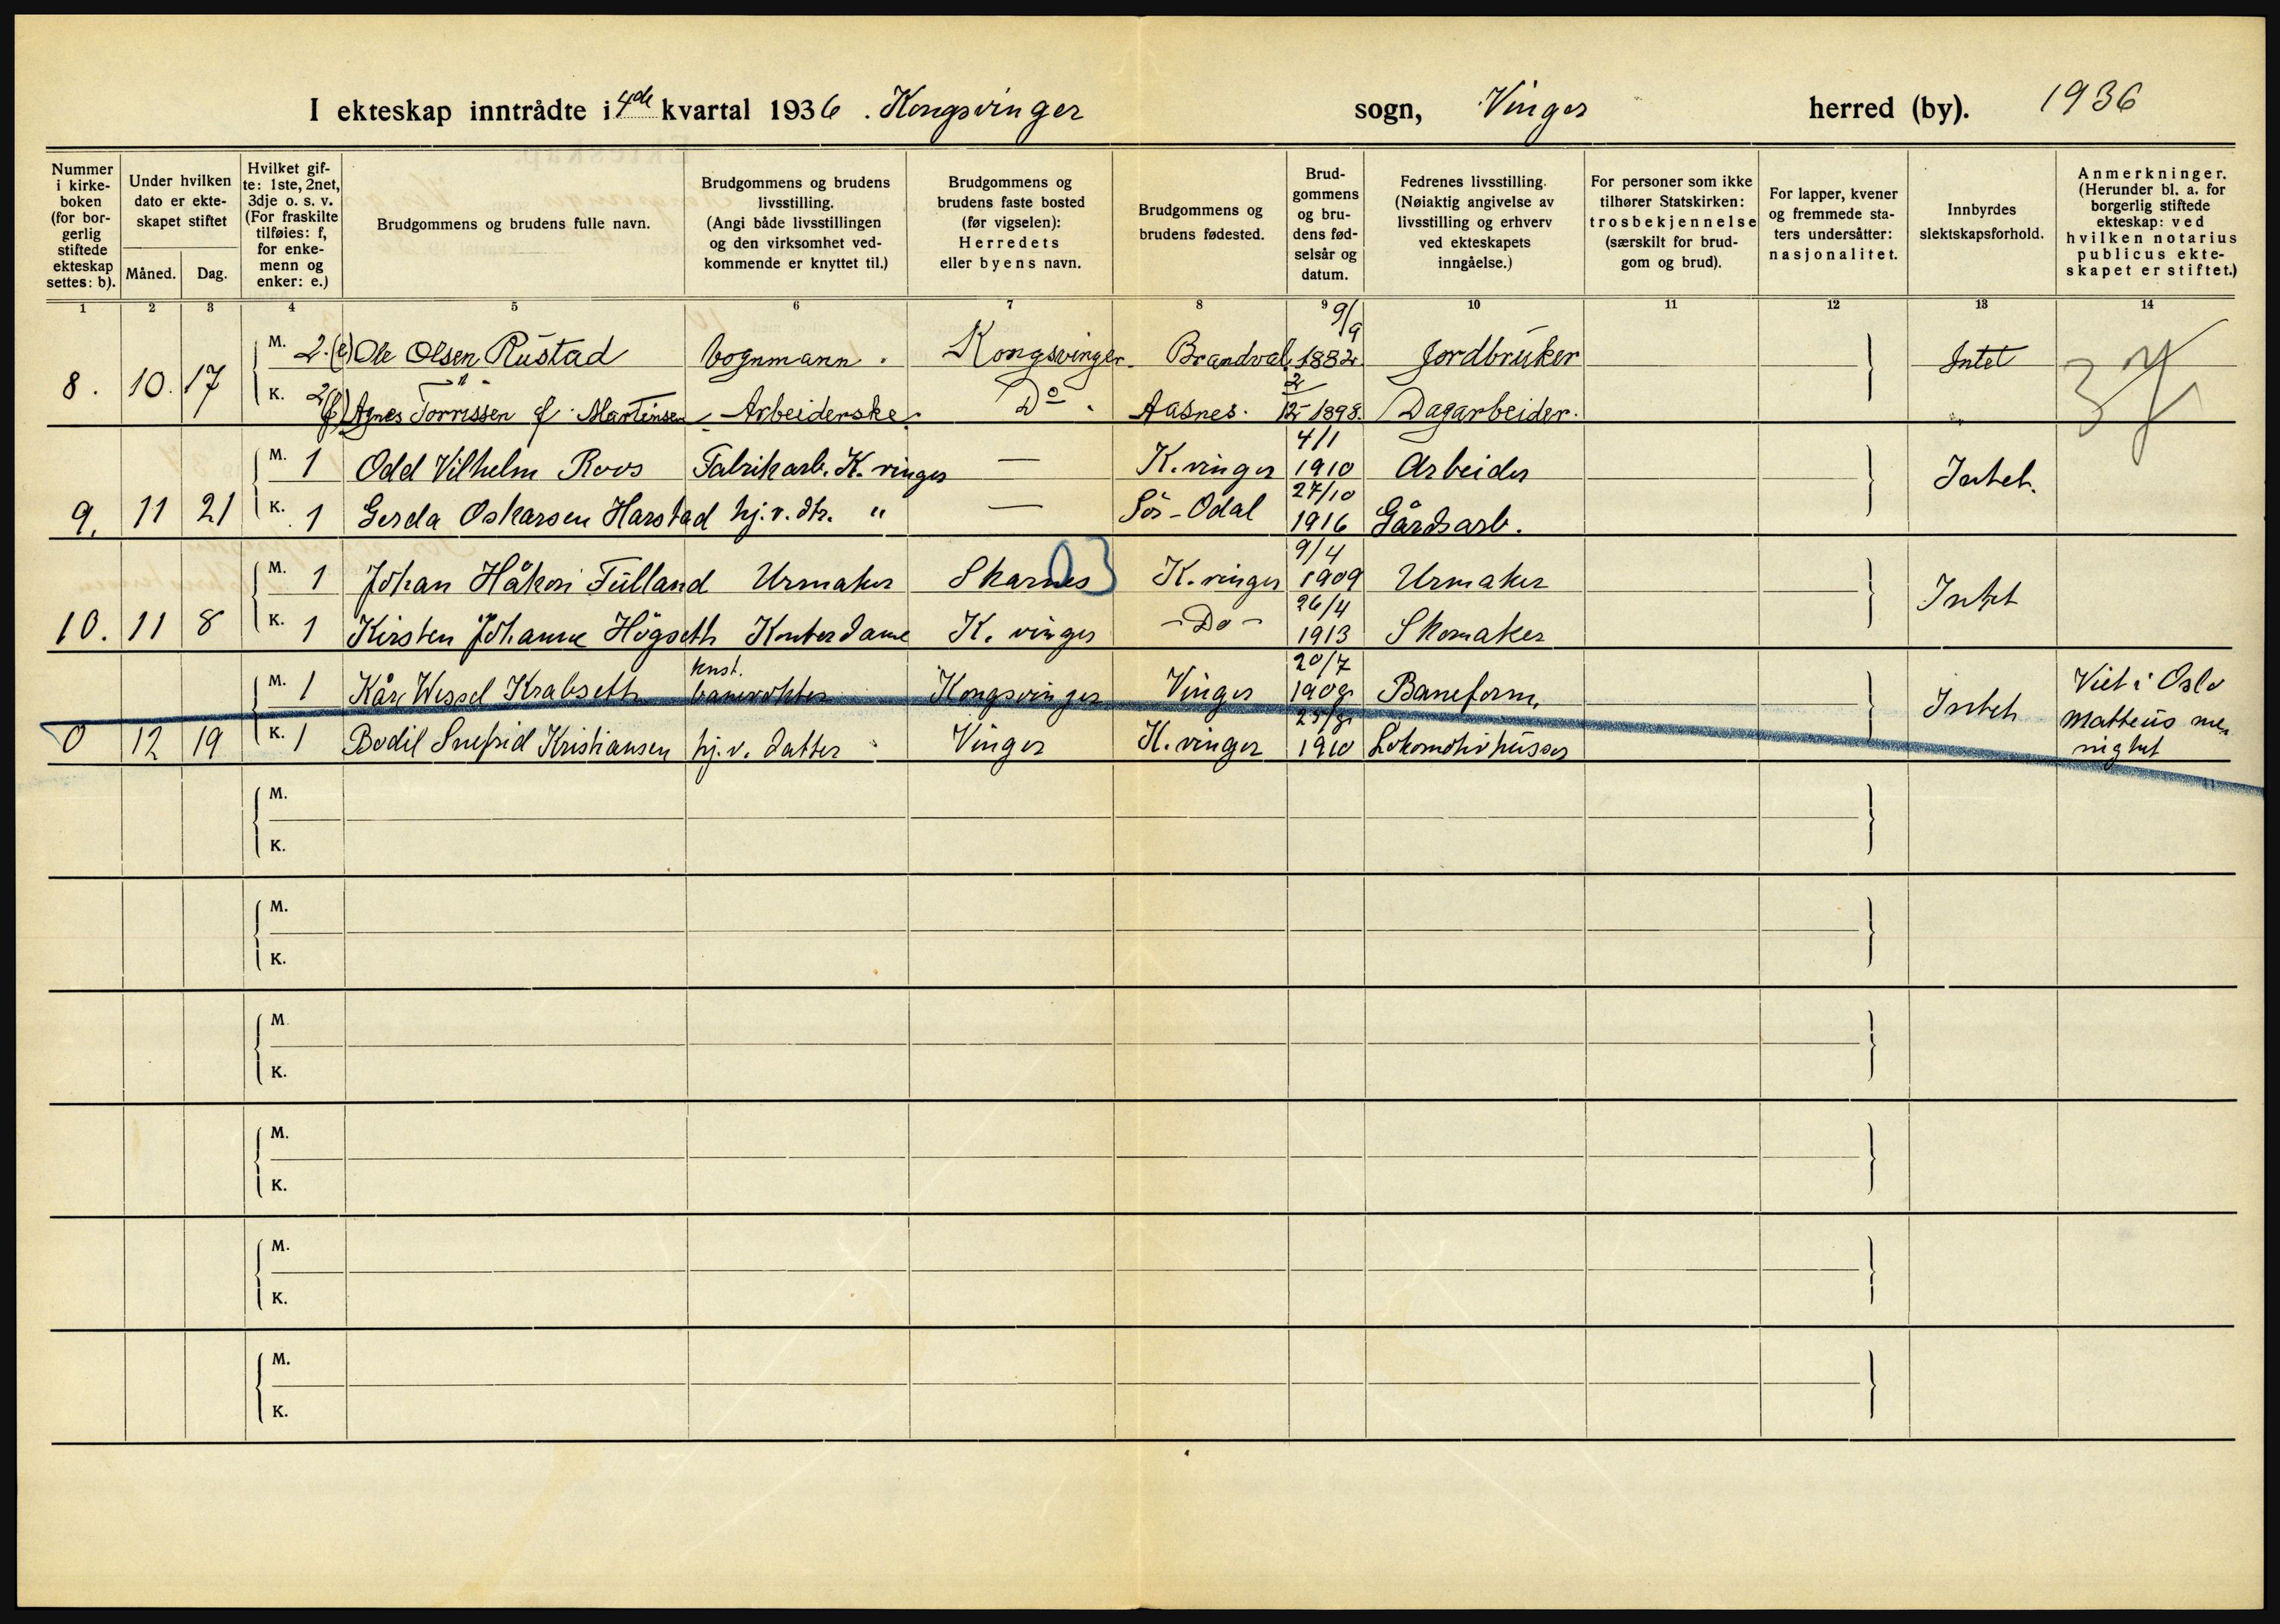 I ekteskap inntrådte i 4de kvartal 1936. Kongsvinger sogn, Vinger herred (by). 1936
Nummer i kirke-boken (for bor-gerlig stiftede ekteskap settes: b).
Under hvilken dato er ekte-skapet stiftet
Måned. Dag.
Hvilket gif-te: 1ste, 2net, 3dje o. s. v. (For fraskilte tilføies: f, for enke-menn og enker: e.)
Brudgommens og brudens fulle navn.
Brudgommens og brudens livsstilling. (Angi både livsstillingen og den virksomhet ved-kommende er knyttet til.)
Brudgommens og brudens faste bosted (før vigselen): Herredets eller byens navn.
Brudgommens og brudens fødested.
Brud-gommens og bru-dens fød-selsår og datum.
Fedrenes livsstilling. (Nøiaktig angivelse av livsstilling og erhverv ved ekteskapets inngåelse.)
For personer som ikke tilhører Statskirken: trosbekjennelse (særskilt for brud-gom og brud).
For lapper, kvener og fremmede sta-ters undersåtter: nasjonalitet.
Innbyrdes slektskapsforhold.
Anmerkninger. (Herunder bl. a. for borgerlig stiftede ekteskap: ved hvilken notarius publicus ekte-skapet er stiftet.)
1 2 3 4 5 6 7 8 9 10 11 12 13 14
M. 2.(e) Ole Olsen Rustad Vognmann. Kongsvinger. Brandval. 9/9 1882. Jordbruker Intet
8. 10. 17
K. 2(f) Agnes Torrissen f. Martinsen Arbeiderske. Do. Aasnes. 2/12 1898. Dagarbeider. "
M. 1 Odd Vilhelm Roos Fabrikarb. K.vinger — K.vinger 4/1 1910 Arbeider Intet.
9. 11 21
K. 1 Gerda Oskarsen Harstad hj.v.dtr. " — Sør-Odal 27/10 1916 Gårdsarb.
M. 1 Johan Håkon Tulland Urmaker Skarnes K.vinger 9/4 1909 Urmaker Intet
10. 11 8
K. 1 Kirsten Johanne Høgseth Kontordame K.vinger -Do- 26/4 1913 Skomaker
M. 1 Kåre Wessel Krabseth konst. banevokter Kongsvinger Vinger 20/7 1909 Baneform. Intet Viet i Oslo Matteus menighet
0 12 19
K. 1 Bodil Snefrid Kristiansen hj.v. datter Vinger K.vinger 1910 Lokomotivpusser
M.
K.
M.
K.
M
K.
M.
K.
M.
K.
M.
K.